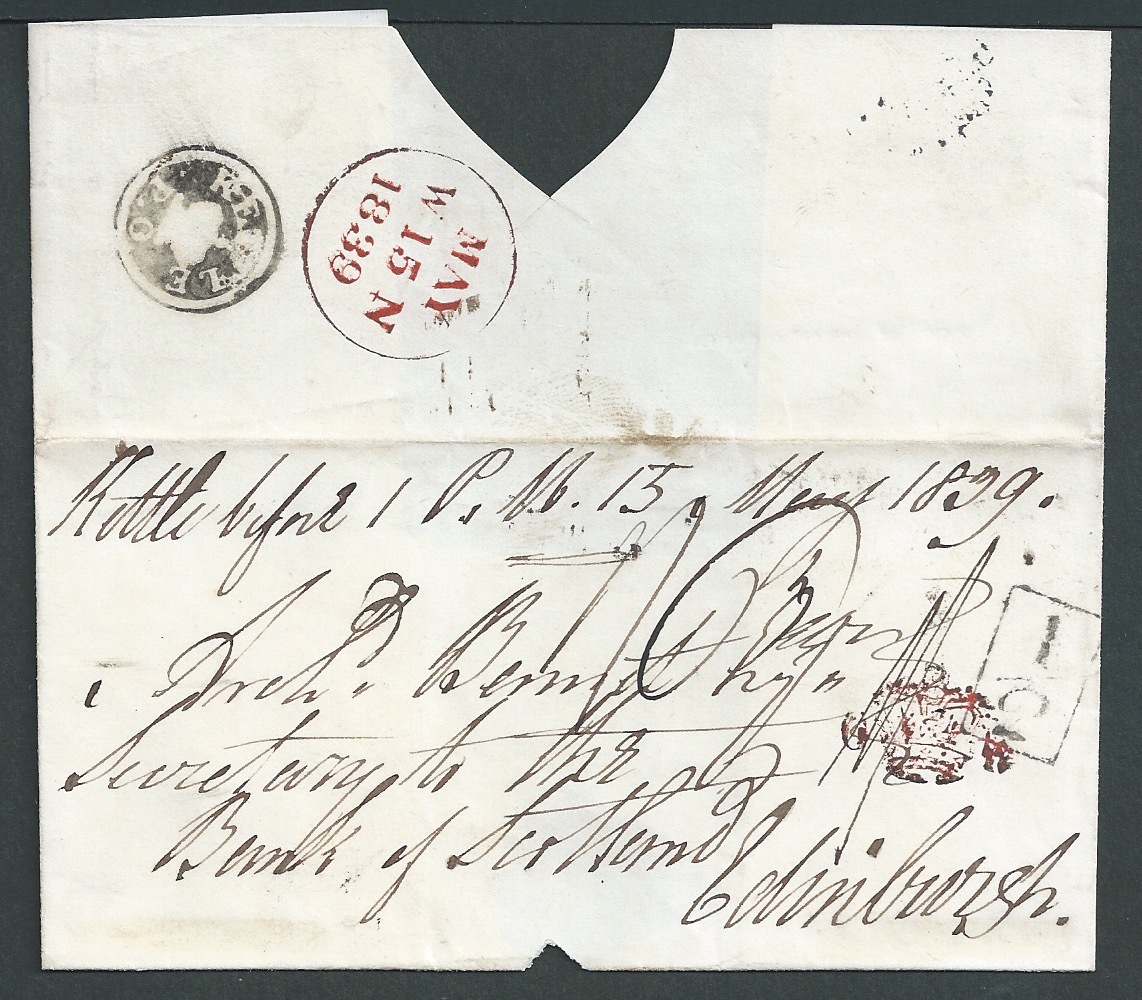 KETTLE P.O
MAY
W 15 N
1839
Kettle before 1 P.M. 15 May 1839.
Archd. Bennet Esqr
Secretary to the
Bank of Scotland
Edinburgh.